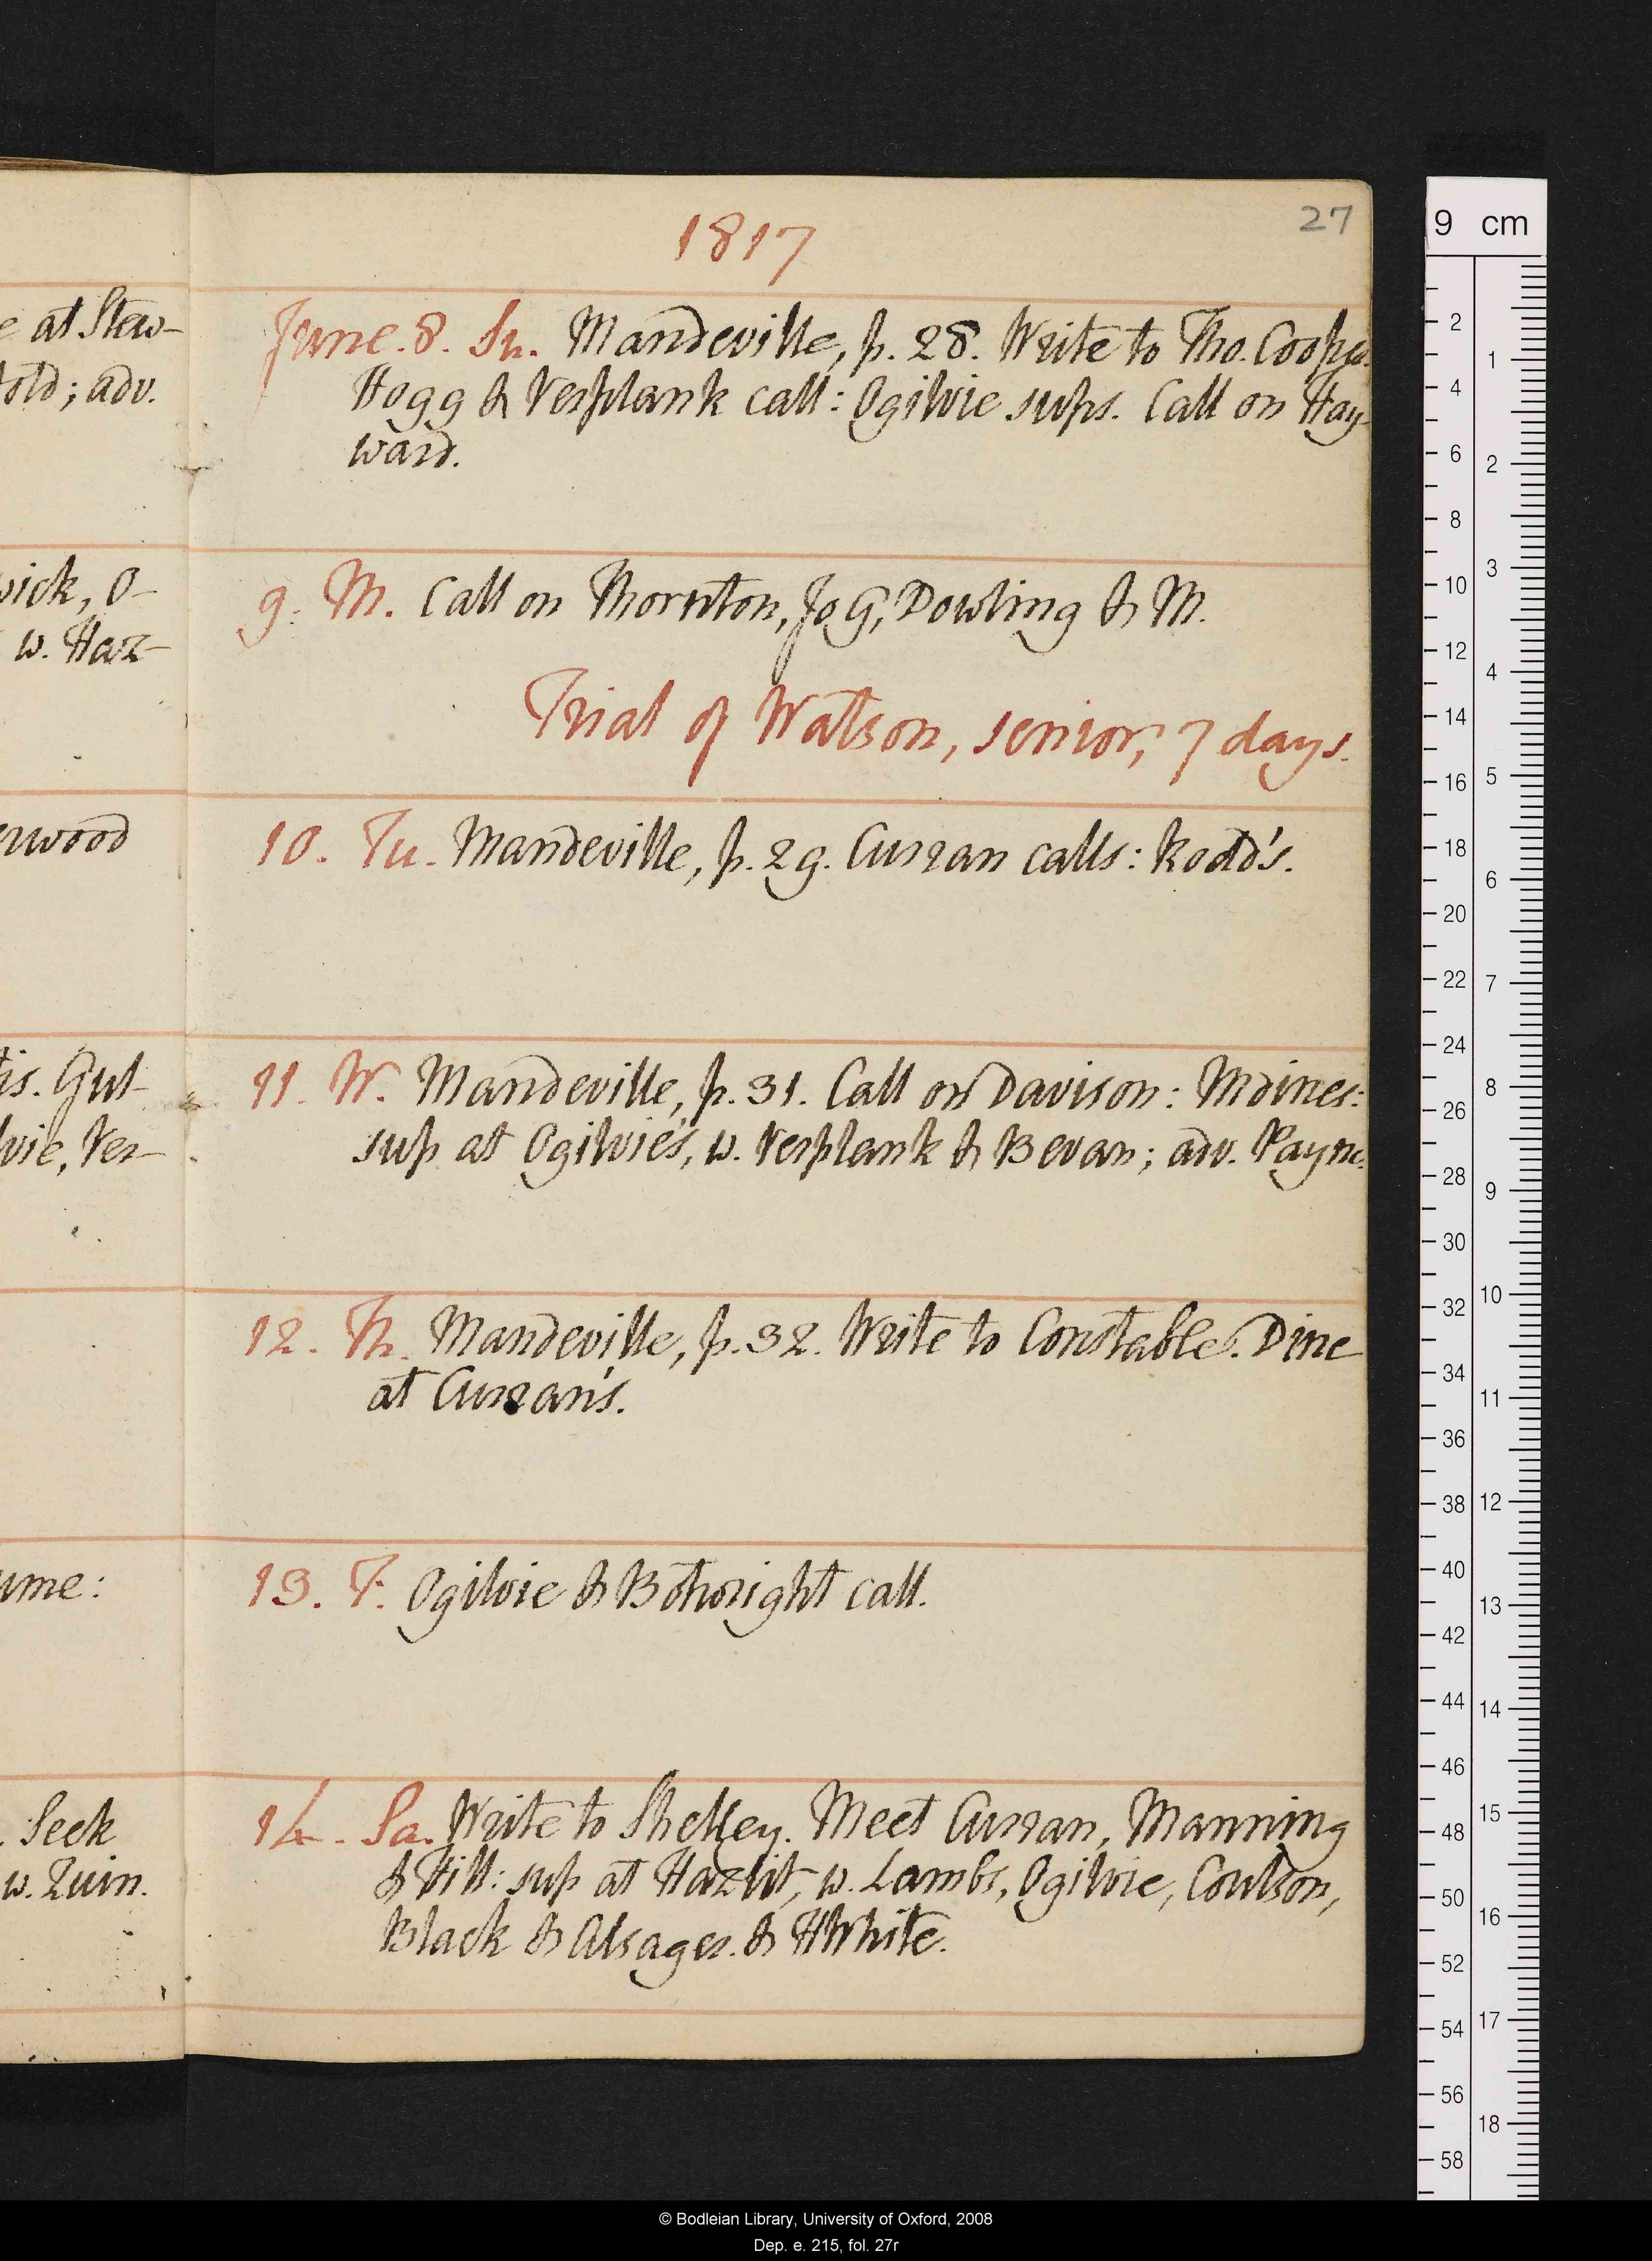 e at Stew-
told; adv.
wick, O-
w. Haz-
rwood
tis. Gut-
lvie, Ver-
ume:
. Seek
w. Quin.
1817
27
June. 8. Su. Mandeville, p. 28. Write to Tho. Cooper.
Hogg & Verplank call: Ogilvie sups. Call on Hay-
ward.
9. M. Call on Thornton, Jo G, Dowling & M.
Trial of Watson, senior, 7 days.
10. Tu. Mandeville, p. 29. Curran calls: Rodd's.
11. W. Mandeville, p. 31. Call on Davison: Moines:
sup at Ogilvie's, w. Verplank & Bevan; adv. Payne.
12. Th. Mandeville, p. 32. Write to Constable. Dine
at Curran's.
13. F. Ogilvie & Botwright call.
14. Sa. Write to Shelley. Meet Curran, Manning
& Hill: sup at Hazlit, w. Lambs, Ogilvie, Coulson,
Black & Alsager. & HWhite.
9 cm
2 4 6 8 10 12 14 16 18 20 22 24 26 28 30 32 34 36 38 40 42 44 46 48 50 52 54 56 58
1 2 3 4 5 6 7 8 9 10 11 12 13 14 15 16 17 18
© Bodleian Library, University of Oxford, 2008
Dep. e. 215, fol. 27r